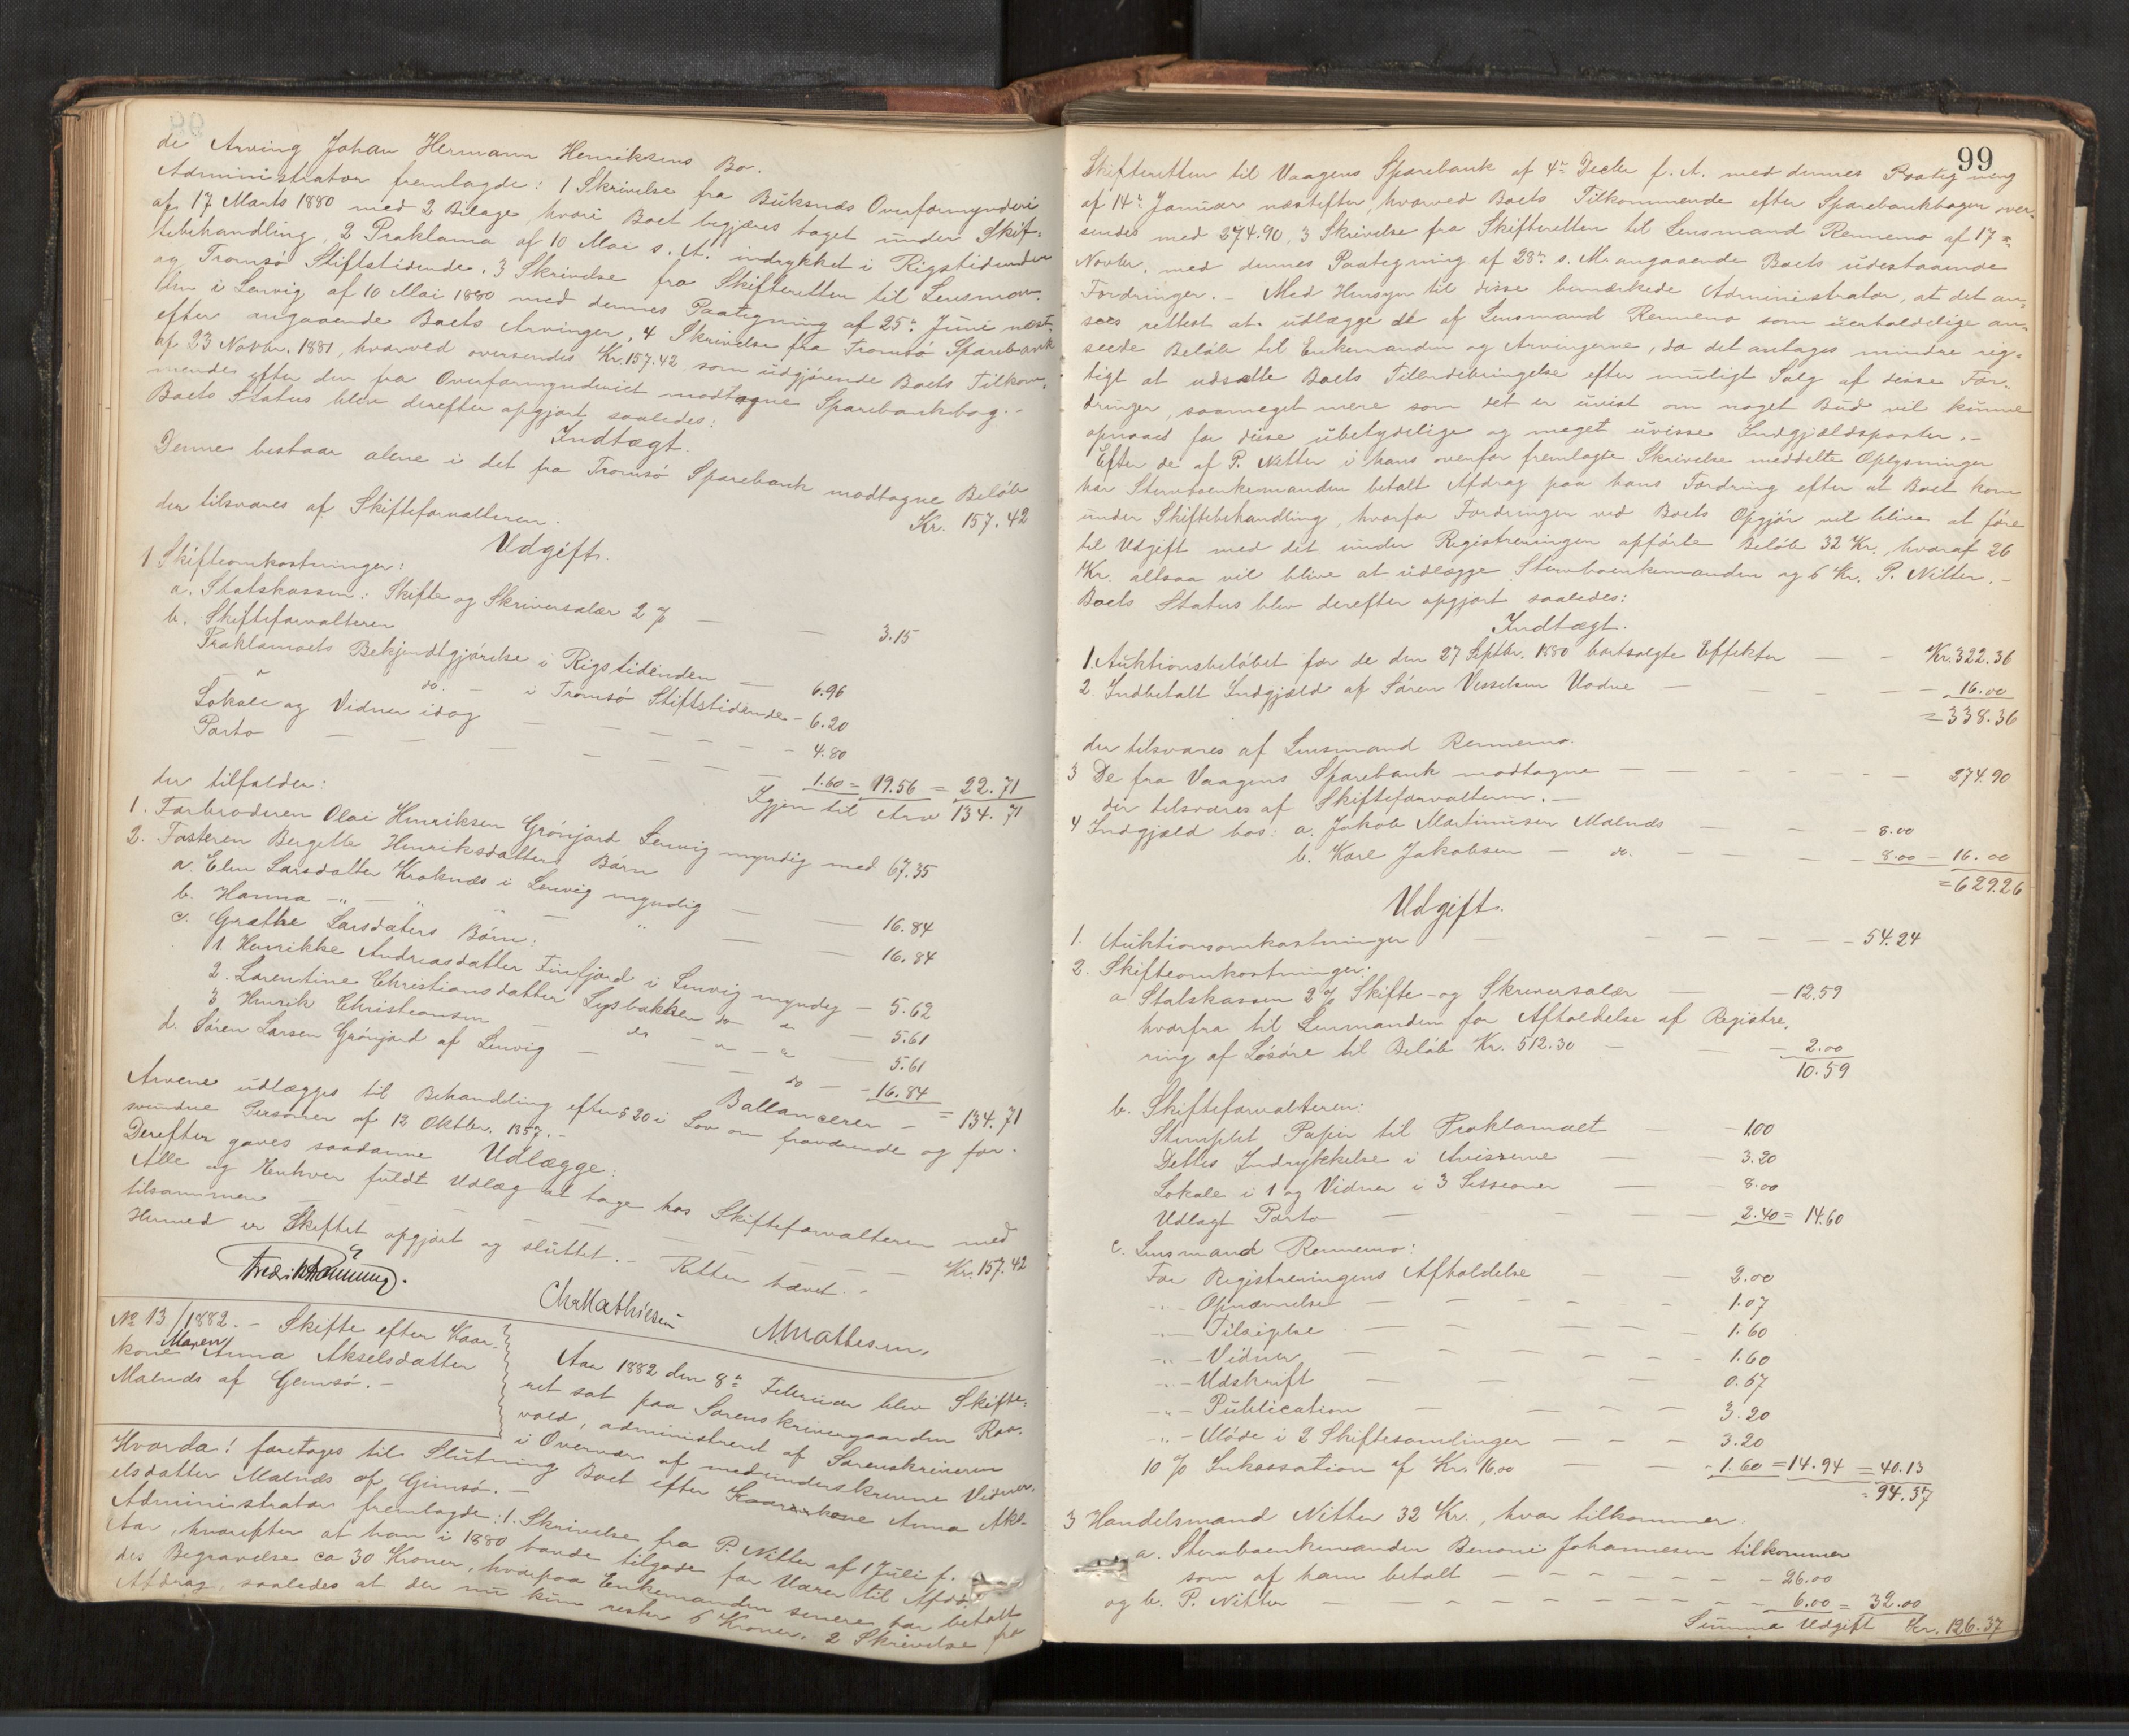 de Arving Johan Hermann Henriksens Bo.
Administrator fremlagde: 1 Skrivelse fra Buksnæs Overformynderi
af 17 Marts 1880 med 2 Bilage, hvori Boet begjæres taget under Skif-
tebehandling, 2 Proklama af 10 Mai s. A. indrykket i Rigstidenden
og Tromsö Stiftstidende. 3 Skrivelse fra Skifteretten til Lensman-
den i Lenvig af 10 Mai 1880 med dennes Paategning af 25de Juni næst-
efter angaaende Boets Arvinger, 4 Skrivelse fra Tromsö Sparebank
af 23 Novbr. 1881, hvorved oversendes Kr. 157.42 som udgjörende Boets Tilkom-
mende efter den fra Overformynderiet modtagne Sparebankbog.-
Boets Status blev derefter opgjort saaledes:
Indtægt.
Denne bestaar alene i det fra Tromsö Sparebank modtagne Belöb
Kr. 157.42
der tilsvares af Skifteforvalteren.
Udgift.
1 Skifteomkostninger:
a. Statskassen: Skifte og Skriversalær 2 % — — 3.15
b. Skifteforvalteren
Proklamaets Bekjendtgjörelse i Rigstidenden — 6.96
— " — do. — i Tromsö Stiftstidende - 6.20
Lokale og Vidner idag — — — — 4.80
Porto — — — — 1.60 = 19.56 = 22.71
Igjen til Arv 134.71
der tilfalder:
1. Farbroderen Olai Henriksen Grönjord Lenvig myndig med 67.35
2. Fasteren Bergette Henriksdatters Börn
a. Elen Larsdatter Kroknæs i Lenvig myndig — — 16.84
b. Hanna — " — " — " — — 16.84
c. Grethe Larsdaters Börn:
1. Henrikke Andreasdatter Finfjord i Lenvig myndig — 5.62
2. Lorentine Christiansdatter Lysbakken do " — 5.61
3. Henrik Christiansen — do — " — " — 5.61
d. Sören Larsen Grönjord af Lenvig — — do — 16.84 = 134.71
Ballancerer
Arvene udlægges til Behandling efter § 20 i Lov om fraværende og for-
svundne Personer af 12 Oktbr. 1857.-
Derefter gaves saadanne Udlægge:
Alle og Enhver fuldt Udlæg at tage hos Skifteforvalteren med
tilsammen — — — — — Kr. 157.42
Hermed er Skiftet opgjört og sluttet.- Retten hævet.-
Chr Mathiesen
No 13/1882. - Skifte efter Kaar-
kone Maren Anna Akselsdatter
Malnæs af Gimsö.-
Aar 1882 den 8de Februar blev Skifte-
ret sat paa Sorenskrivergaarden Rav-
vold, administreret af Sorenskriveren
i Overvær af medunderskrevne Vidner.
Hvorda! foretoges til Slutning Boet efter Kaarkone Anna Aks-
elsdatter Malnæs af Gimsö.-
Administrator fremlagde: 1. Skrivelse fra P. Nitter af 1 Juli f.
Aar, hvorefter at han i 1880 havde tilgode for Varer til Afdö-
des Begravelse ca 30 Kroner, hvorpaa Enkemanden senere har betalt
Afdrag, saaledes at der nu kun rester 6 Kroner. 2 Skrivelse fra
99
Skifteretten til Vaagens Sparebank af 4de Decbr f. A. med dennes Paategning
af 14de Januar næstefter, hvorved Boets Tilkommende efter Sparebankbogen over-
sendes med 274.90, 3 Skrivelse fra Skifteretten til Lensmand Rennemo af 17de
Novbr. med dennes Paategning af 28de s. M. angaaende Boets udestaaende
Fordringer.- Med Hensyn til disse bemærkede Administrator, at det an-
saaes rettest at udlægge de af Lensmand Rennemo som uerholdelige an-
seede Belöb til Enkemanden og Arvingerne, da det antages mindre rig-
tigt at udsætte Boets Tilendebringelse efter muligt Salg af disse For-
dringer, saameget mere som det er uvist om noget Bud vil kunne
opnaaes for disse ubetydelige og meget uvisse Indgjældsposter.-
Efter de af P. Nitter i hans ovenfor fremlagte Skrivelse meddelte Oplysninger
har Stervboenkemanden betalt Afdrag paa hans Fordring efter at Boet kom
under Skiftebehandling, hvorfor Fordringen ved Boets Opgjör vil blive at före
til Udgift med det under Registreringen opförte Belöb 32 Kr., hvoraf 26
Kr. altsaa vil blive at udlægge Stervboenkemanden og 6 Kr. P. Nitter.-
Boets Status blev derefter opgjort saaledes:
Indtægt.
1. Auktionsbelöbet for de den 27 Septbr. 1880 bortsolgte Effekter — - Kr. 322.36
2. Indbetalt Indgjæld af Sören Vesselsen Vodne — — — 16.00
= 338.36
der tilsvares af Lensmand Rennemo.
3 De fra Vaagens Sparebank modtagne — — — 274.90
der tilsvares af Skifteforvalteren.-
4 Indgjæld hos: a. Jakob Martinusen Malnæs — — — 8.00
b. Karl Jakobsen — do. — — — 8.00 — 16.00
= 629.26
Udgift.
1. Auktionsomkostninger — — — — 54.24
2. Skifteomkostninger:
a Statskassen 2 % Skifte- og Skriversalær — — 12.59
hvorfra til Lensmanden for Afholdelse af Registre-
ring af Lösöre til Belöb Kr. 512.30 — — 2.00
10.59
b. Skifteforvalteren:
Stemplet Papir til Proklamaet — 1.00
Dettes Indrykkelse i Aviserne — 3.20
Lokale i 1 og Vidner i 3 Sessioner — 8.00
Udlagt Porto — — — 2.40 = 14.60
c. Lensmand Rennemo:
For Registreringens Afholdelse — — 2.00
-"- Opnævnelse — — — 1.07
-"- Tilsigelse — — — 1.60
-"- Vidner — — — 1.60
-"- Udskrift — — — 0.67
-"- Publication — — — 3.20
-"- Möde i 2 Skiftesamlinger — — — 3.20
10 % Inkassation af Kr. 16.00 — — 1.60 = 14.94 = 40.13
= 94.37
3 Handelsmand Nitter 32 Kr., hvor tilkommer:
a. Stervboenkemanden Benoni Johannesen tilkommer
som af ham betalt — — — — 26.00
og b. P. Nitter — — — — 6.00 = 32.00
Summa Udgift Kr. 126.37